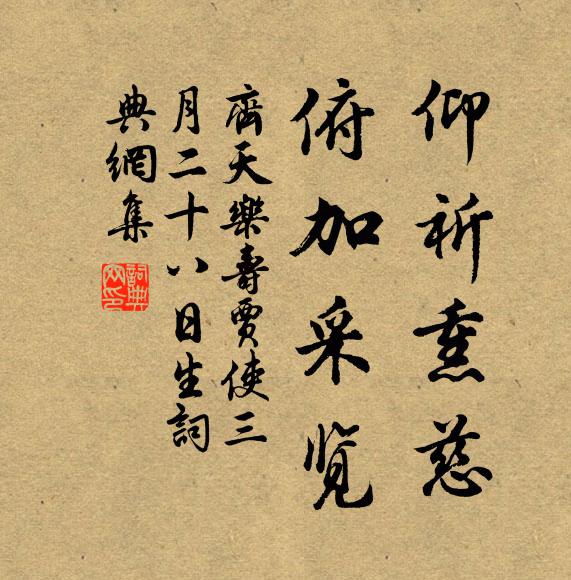 仰祈熏慈
俯加采览
齊天樂壽賈使三
月二十八日生詞
典網集
詞典網印